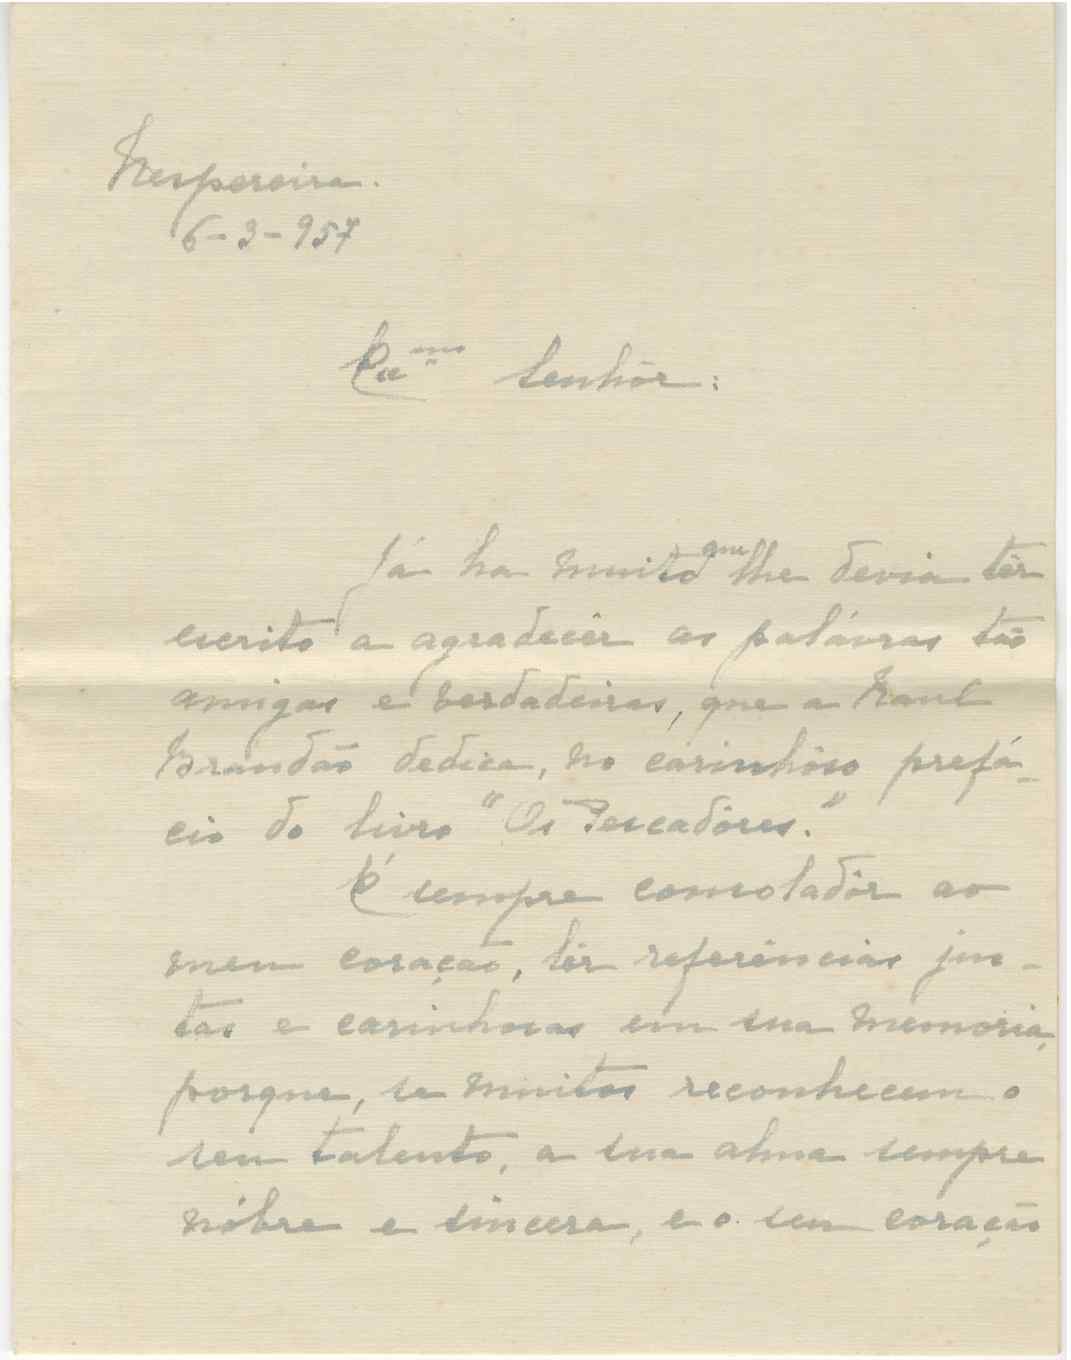 Nespereira.
6-3-957
Exᵐᵒ Senhôr:
Já ha muito que lhe devia têr
escrito a agradecêr as palávras tão
amigas e verdadeiras, que a Raul
Brandão dedica, no carinhôso prefá-
cio do livro "Os Pescadôres."
É sempre consoladôr ao
meu coração, lêr referências jus-
tas e carinhosas em sua memoria,
porque, se muitos reconhecem o
seu talento, a sua alma sempre
nóbre e sincera, e o seu coração